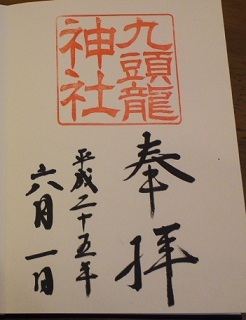 九頭龍
神社
奉拝
平成二十五年
六月一日